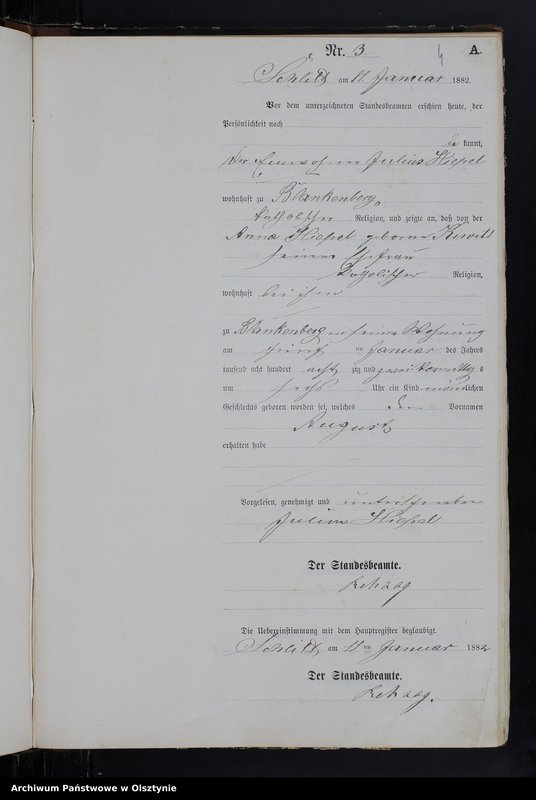 Nr. 3
4
A.
Schlitt am 11. Januar 1882.
Vor dem unterzeichneten Standesbeamten erschien heute, der
Persönlichkeit nach
be kannt,
der Einwohner Julius Hippel
wohnhaft zu Blankenberg,
katholischer Religion, und zeigte an, daß von der
Anna Hippel geborne
seiner Ehefrau
katholischer Religion,
wohnhaft bei ihm
zu Blankenberg in seiner Wohnung
am fünf ten Januar des Jahres
tausend acht hundert acht zig und zwei Vormittags
um sechs Uhr ein Kind männlichen
Geschlechts geboren worden sei, welches den Vornamen
August
erhalten habe
Vorgelesen, genehmigt und unterschrieben
Julius Hippel
Der Standesbeamte.
Rehaag
Die Uebereinstimmung mit dem Hauptregister beglaubigt.
Schlitt am 11 ten Januar 1882
Der Standesbeamte.
Rehaag.
Archiwum Państwowe w Olsztynie